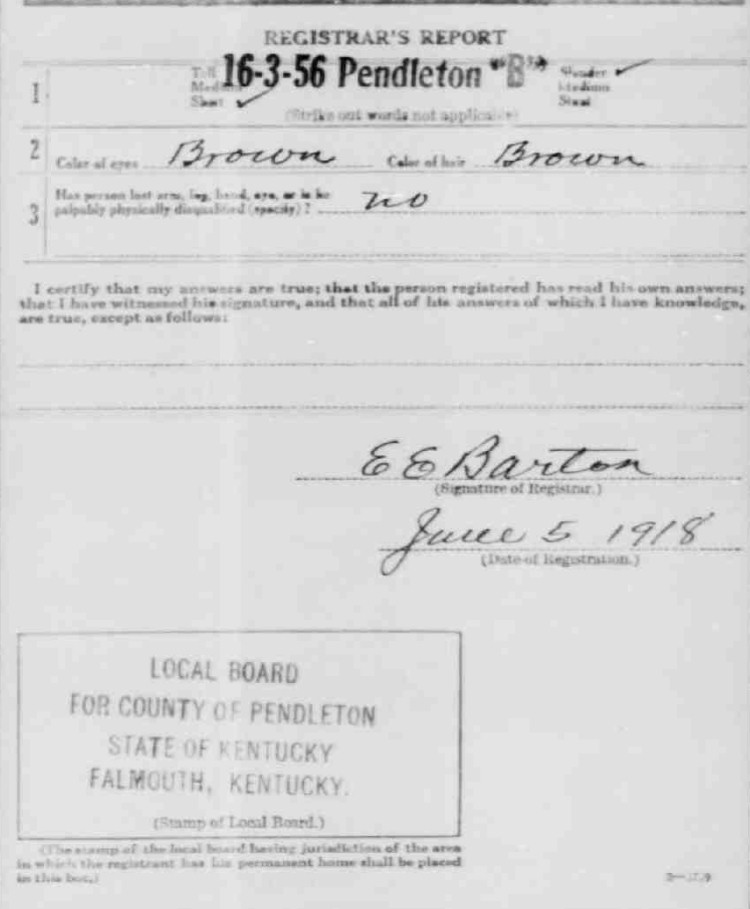 REGISTRAR'S REPORT
1
Tall
Medium
Short ✓
16-3-56 Pendleton "B"
Slender ✓
Medium
Stout
(Strike out words not applicable)
2 Color of eyes Brown Color of hair Brown
3 Has person lost arm, leg, hand, eye, or is he
palpably physically disqualified (specify)? no
I certify that my answers are true; that the person registered has read his own answers;
that I have witnessed his signature, and that all of his answers of which I have knowledge,
are true, except as follows:
E E Barton
(Signature of Registrar.)
June 5 1918
(Date of Registration.)
LOCAL BOARD
FOR COUNTY OF PENDLETON
STATE OF KENTUCKY
FALMOUTH, KENTUCKY.
(Stamp of Local Board.)
(The stamp of the local board having jurisdiction of the area
in which the registrant has his permanent home shall be placed
in this box.)